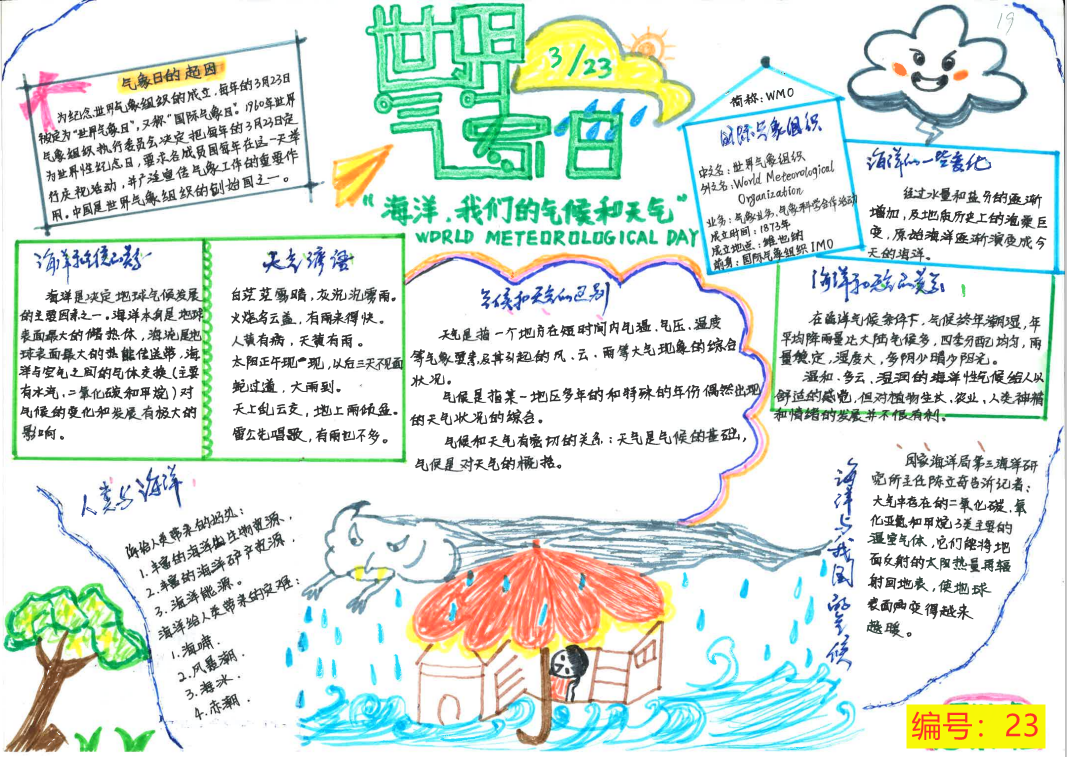 世界气象日
3/23
19
"海洋,我们的气候和天气"
WORLD METEOROLOGICAL DAY
气象日的起因
为纪念世界气象组织的成立,每年的3月23日
被定为"世界气象日",又称"国际气象日"。1960年世界
气象组织执行委员会决定把每年的3月23日定
为世界性纪念日,要求各成员国每年在这一天举
行庆祝活动,并广泛宣传气象工作的重要作
用。中国是世界气象组织的创始国之一。
简称:WMO
国际气象组织
中文名:世界气象组织
外文名:World Meteorological
Organization
业务:气象业务、气象科学合作活动
成立时间:1873年
成立地点:维也纳
前身:国际气象组织IMO
海洋的一些变化
经过水量和盐分的逐渐
增加,及地质历史上的沧桑巨
变,原始海洋逐渐演变成今
天的海洋。
海洋是决定地球气候发展
的主要因素之一。海洋本身是地球
表面最大的储热体,海流是地
球表面最大的热能传送带,海
洋与空气之间的气体交换(主要
有水汽、二氧化碳和甲烷)对
气候的变化和发展有极大的
影响。
天气谚语
白茫茫雾晴,灰沉沉雾雨。
火烧乌云盖,有雨来得快。
人黄有病,天黄有雨。
太阳正午现一现,以后三天不见面
蛇过道,大雨到。
天上乱云交,地上雨倾盆。
雷公先唱歌,有雨也不多。
气候和天气的区别
天气是指一个地方在短时间内气温、气压、温度
等气象要素及其引起的风、云、雨等大气现象的综合
状况。
气候是指某一地区多年的和特殊的年份偶然出现
的天气状况的综合。
气候和天气有密切的关系:天气是气候的基础,
气候是对天气的概括。
海洋和天气的关系
在海洋气候条件下,气候终年潮湿,年
平均降雨量比大陆气候多,四季分配均匀,雨
量稳定,湿度大,多阴少晴少阳光。
温和、多云、湿润的海洋性气候给人以
舒适的感觉,但对植物生长、农业,人类神精
和情绪的发展并不很有利。
人类与海洋
海给人类带来的好处:
1.丰富的海洋生物资源,
2.丰富的海洋矿产资源,
3.海洋能源。
海洋给人类带来的灾难:
1.海啸.
2.风暴潮.
3.海冰.
4.赤潮.
海洋与我国气候
国家海洋局第三海洋研
究所主任陈立奇告诉记者:
大气中存在的二氧化碳,氧
化亚氮和甲烷,3类主要的
温室气体,它们能将地
面反射的太阳热量再辐
射回地表,使地球
表面变得越来
越暖。
编号:23